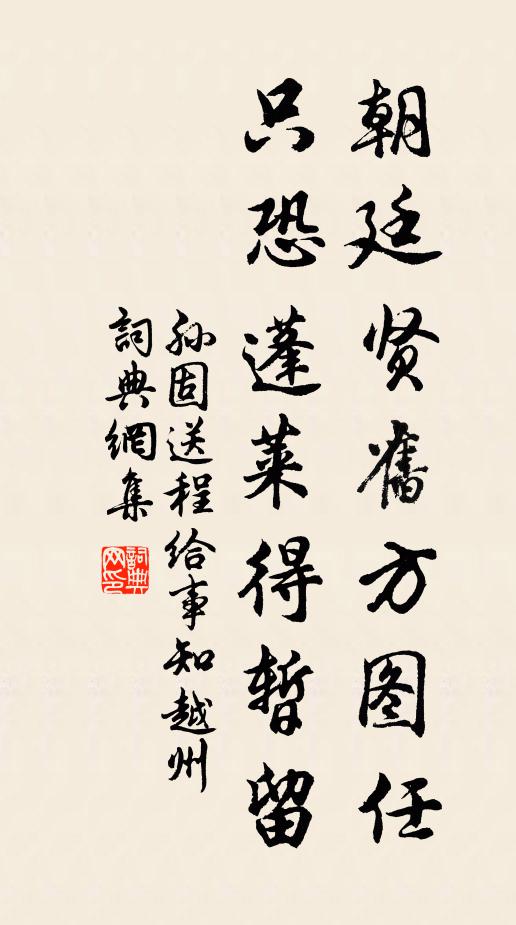 朝廷贤舊方图任
只恐蓬萊得暫留
孙固送程给事知越州
詞典網集
詞典网印